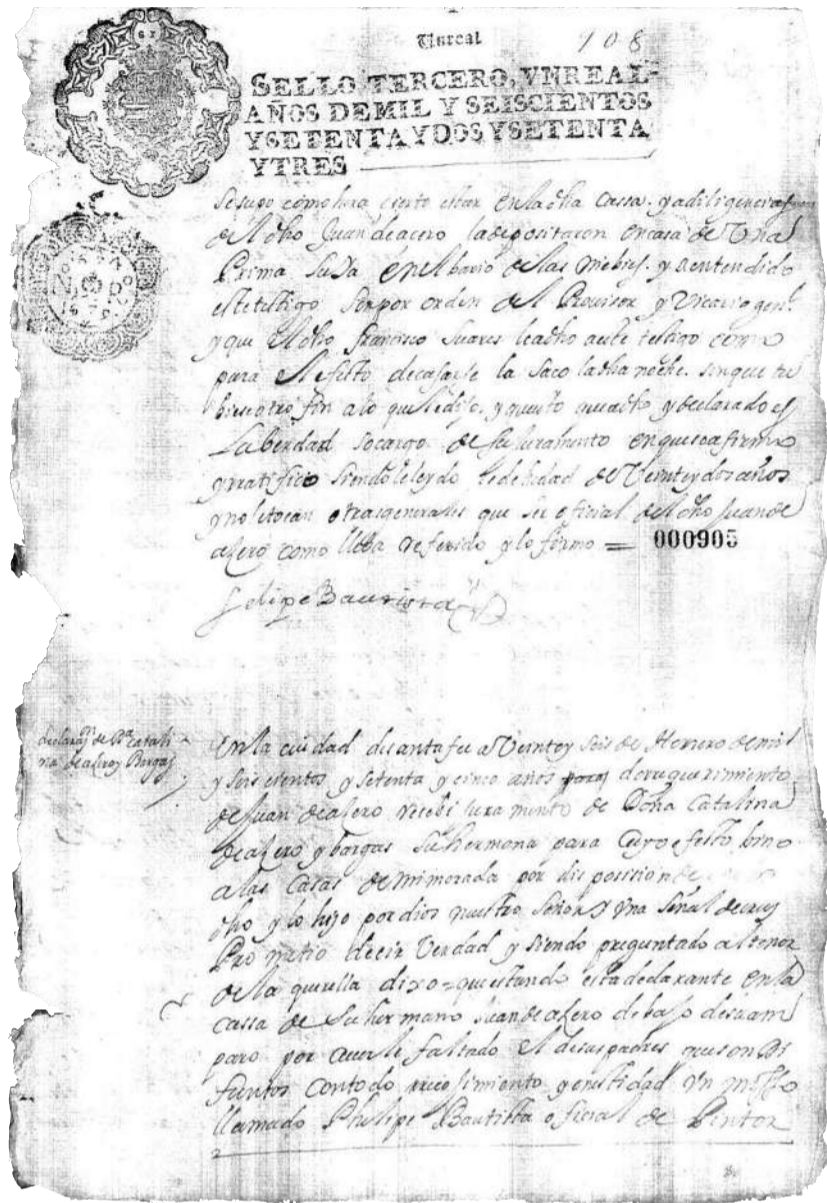 Vn real 908
SELLO TERCERO, VNREAL
AÑOS DEMIL Y SEISCIENTOS
YSETENTA Y DOS YSETENTA
YTRES
Sesupo como hera cierto estar enladha Cassa. yadiligencia
del dho Juan deacero ladepositaron en casa de Vna
Prima suia en el bario de las niebes. y a entendido
este testigo por orden del Provisor y Vicario gen.l
y que el dho francisco Suares leadho aeste testigo como
para el efecto decasarse la Saco ladha noche. sin que tu
biese otro fin alo que le dijo. y questo que adho y declarado es
La berdad socargo de su Juramento en que se afirmo
y rratifico siendole leydo es de hedad de Veinte y dos años
y no le tocan otras generales que ser oficial del dho Juan de
asero como lleba referido y lo firmo = 000905
Felipe Bautista
declaraz.on de D.a Catali
na de asero y Bargas
En la ciudad de santa fee a Veinte y Seis de Henero de mil
y seis cientos y setenta y cinco años de rrequerimiento
de Juan de asero recebi Jura mento de Doña Catalina
de asero y bargas su hermana para Cuyo efecto bino
a las Casas de mi morada por dis posision de
dho y lo hizo por dios nuestro Señor y Vna Señal de cruz
Pro metio decir Verdad y siendo preguntado al tenor
de la querella dixo = que estando esta declarante en la
cassa de Su hermano Juan de asero debajo de su am
paro por averle faltado el de sus padres que son di
funtos con todo rrecojimiento y onestidad Vn moso
llamado Phelipe Bautista oficial de Pintor